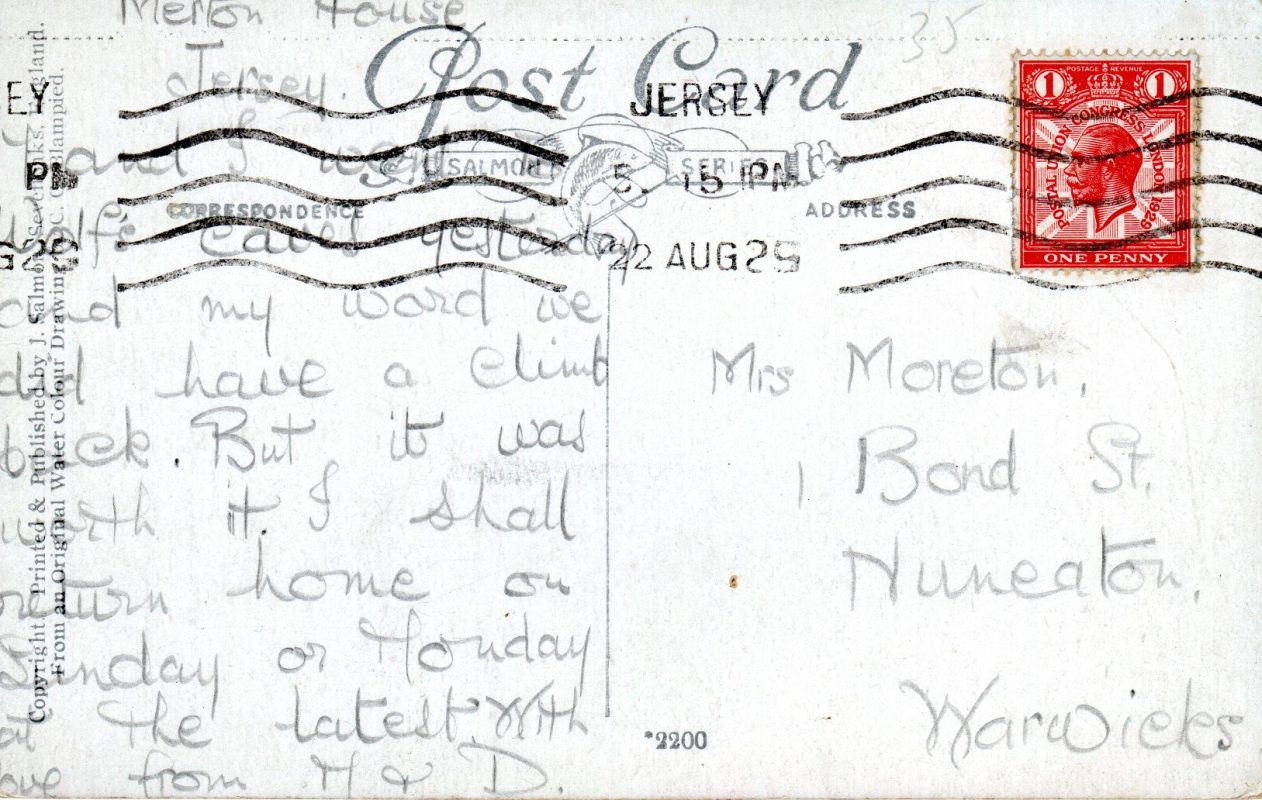 Merton House
Jersey.
and I went
Wolfe caves yesterday
and my word we
did have a climb
back. But it was
worth it. I shall
return home on
Sunday or Monday
at the latest. With
love from H & D.
Post Card
SALMON SERIES
CORRESPONDENCE
ADDRESS
EY
JERSEY
5. 15 PM
22 AUG 29
POSTAGE REVENUE
1 1
POSTAL UNION CONGRESS LONDON 1929
ONE PENNY
35
Mrs Moreton,
1 Bond St.
Nuneaton.
Warwicks
*2200
Copyright, Printed & Published by J. Salmon, Sevenoaks, England.
From an Original Water Colour Drawing